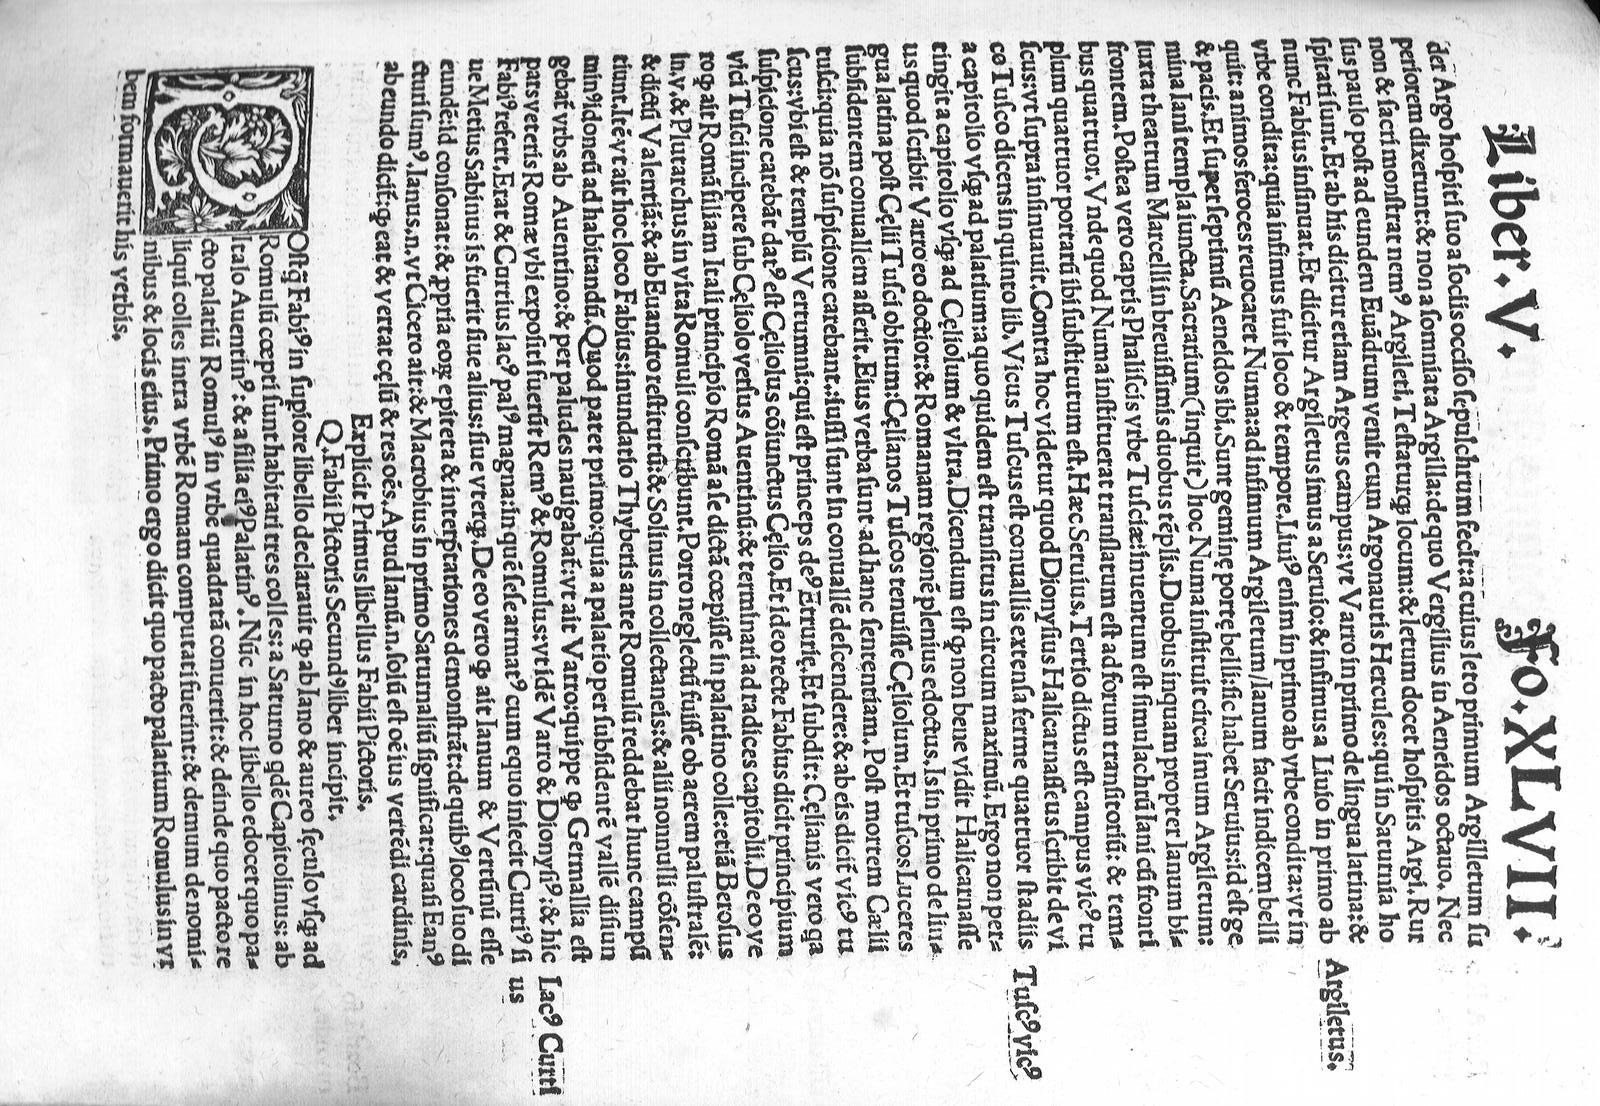 Liber. V. Fo. XLVII.
der Argo hospiti suo a sociis occiso sepulchrum fecit: a cuius leto primum Argilletum su
periorem dixerunt: & non a somniata Argilla: de quo Vergilius in Aeneidos octauo. Nec
non & sacri monstrat nemꝰ Argileti, Testaturꝗ locum: & letum docet hospitis Argi. Rur
sus paulo post ad eundem Euādrum venit cum Argonautis Hercules: qui in Saturnia ho
spitati sunt. Et ab his dicitur etiam Argeus campus: vt Varro in primo de lingua latina: &
nunc Fabius insinuat. Et dicitur Argiletus imus a Seruio: & infimus a Liuio in primo ab
vrbe condita: quia infimus fuit loco & tempore. Liuiꝰ enim in primo ab vrbe condita: vt in
quit: animos feroces reuocaret Numa: ad infimum Argiletum / Ianum facit indicem belli
& pacis. Et super septimū Aeneidos ibi. Sunt geminę portę belli: sic habet Seruius: id est ge
mina Iani templa iuncta. Sacrarium (inquit) hoc Numa instituit circa imum Argiletum:
iuxta theatrum Marcelli in breuissimis duobus tēplis. Duobus inquam propter Ianum bi⸗
frontem. Postea vero captis Phaliscis vrbe Tusciæ: inuentum est simulachrū Iani cū fronti
bus quattuor. Vnde quod Numa instituerat translatum est ad forum transitoriū: & tem⸗
plum quattuor portarū ibi substitutum est. Hæc Seruius. Tertio dictus est campus vicꝰ tu
scus: vt supra insinuauit. Contra hoc videtur quod Dionysius Halicarnasseus scribit de vi
co Tusco dicens in quinto lib. Vicus Tuscus est conuallis extensa ferme quattuor stadiis
a capitolio vsꝗ ad palatium: a quo quidem est transitus in circum maximū. Ergo non per⸗
tingit a capitolio vsꝗ ad Cęliolum & vltra. Dicendum est ꝙ non bene vidit Halicarnasse
us quod scribit Varro eo doctior: & Romanam regionē plenius edoctus. Is in primo de lin⸗
gua latina post Cęlii Tusci obitum: Cęlianos Tuscos tenuisse Cęliolum. Et tuscos Luceres
subsidentem conuallem asserit. Eius verba sunt ad hanc sententiam. Post mortem Cælii
tusci: quia nō suspicione carebant: iussi sunt in conuallē descendere: & ab eis dicit̄ vicꝰ tu
scus: vbi est & templū Vertumni: qui est princeps deꝰ Etrurię. Et subdit: Cęlianis vero qa
suspicione carebāt datꝰ est Cęliolus cōiunctus Cęlio. Et ideo recte Fabius dicit principium
vici Tusci incipere sub Cęliolo versus Auentinū: & terminari ad radices capitolii. De eo ve
ro ꝙ ait Romā filiam Itali principio Romā a se dictā cœpisse in palatino colle: etiā Berosus
in .v. & Plutarchus in vita Romuli conscribunt. Porro neglectū fuisse ob aerem palustralē:
& dictū Valentiā: & ab Euandro restitutū: & Solinus in collectaneis: & alii nonnulli cōsen⸗
tiunt. Itē vt ait hoc loco Fabius: inundatio Thyberis ante Romulū reddebat hunc campū
minꝰ idoneū ad habitandū. Quod patet primo: quia a palatio per subsidentē vallē disiun
gebat̄ vrbs ab Auentino: & per paludes nauigabat̄: vt ait Varro: quippe ꝙ Germallia est
pars veteris Romæ vbi expositi fuerūt Remꝰ & Romulus: vt idē Varro & Dionysiꝰ: & hic
Fabiꝰ refert. Erat & Curtius lacꝰ palꝰ magna: in quē sese armatꝰ cum equo iniecit Curtiꝰ si
ue Metius Sabinus is fuerit siue alius: siue vterꝗ. De eo vero ꝙ ait Ianum & Vertūnū esse
eundē: id consonat: & ꝓpria eoꝝ epiteta & interp̄tationes demonstrāt: de quibꝰ loco suo di
cturi sumꝰ. Ianus .n. vt Cicero ait: & Macrobius in primo Saturnaliū significat: quasi Eanꝰ
ab eundo dicit̄: ꝙ eat & vertat cęlū & res oēs. Apud Ianū .n. solū est oēius vertēdi cardinis.
Explicit Primus libellus Fabii Pictoris.
Q. Fabii Pictoris Secundꝰ liber incipit.
POstꝗ̄ Fabiꝰ in supiore libello declarauit ꝙ ab Iano & aureo sęculo vsꝗ ad
Romulū cœpti sunt habitari tres colles: a Saturno qdē Capitolinus: ab
Italo Auentinꝰ: & a filia eiꝰ Palatinꝰ. Nūc in hoc libello edocet quo pa⸗
cto palatiū Romulꝰ in vrbē quadratā conuertit: & deinde quo pacto re
liqui colles intra vrbē Romam computati fuerint: & demum de nomi⸗
nibus & locis eius. Primo ergo dicit quo pacto palatium Romulus in vr
bem formauerit his verbis.
Argiletus.
Tuscꝰ vicꝰ
Lacꝰ Curti
us